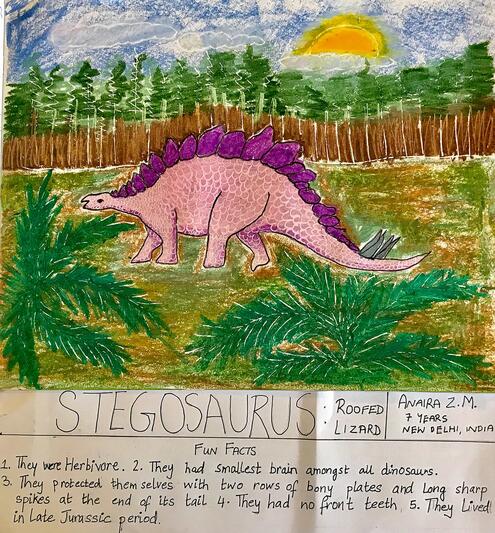 STEGOSAURUS: ROOFED LIZARD
ANAIRA Z.M.
7 YEARS
NEW DELHI, INDIA
FUN FACTS
1. They were Herbivore. 2. They had smallest brain amongst all dinosaurs.
3. They protected themselves with two rows of bony plates and Long sharp
spikes at the end of its tail 4. They had no front teeth 5. They Lived
in Late Jurassic period.